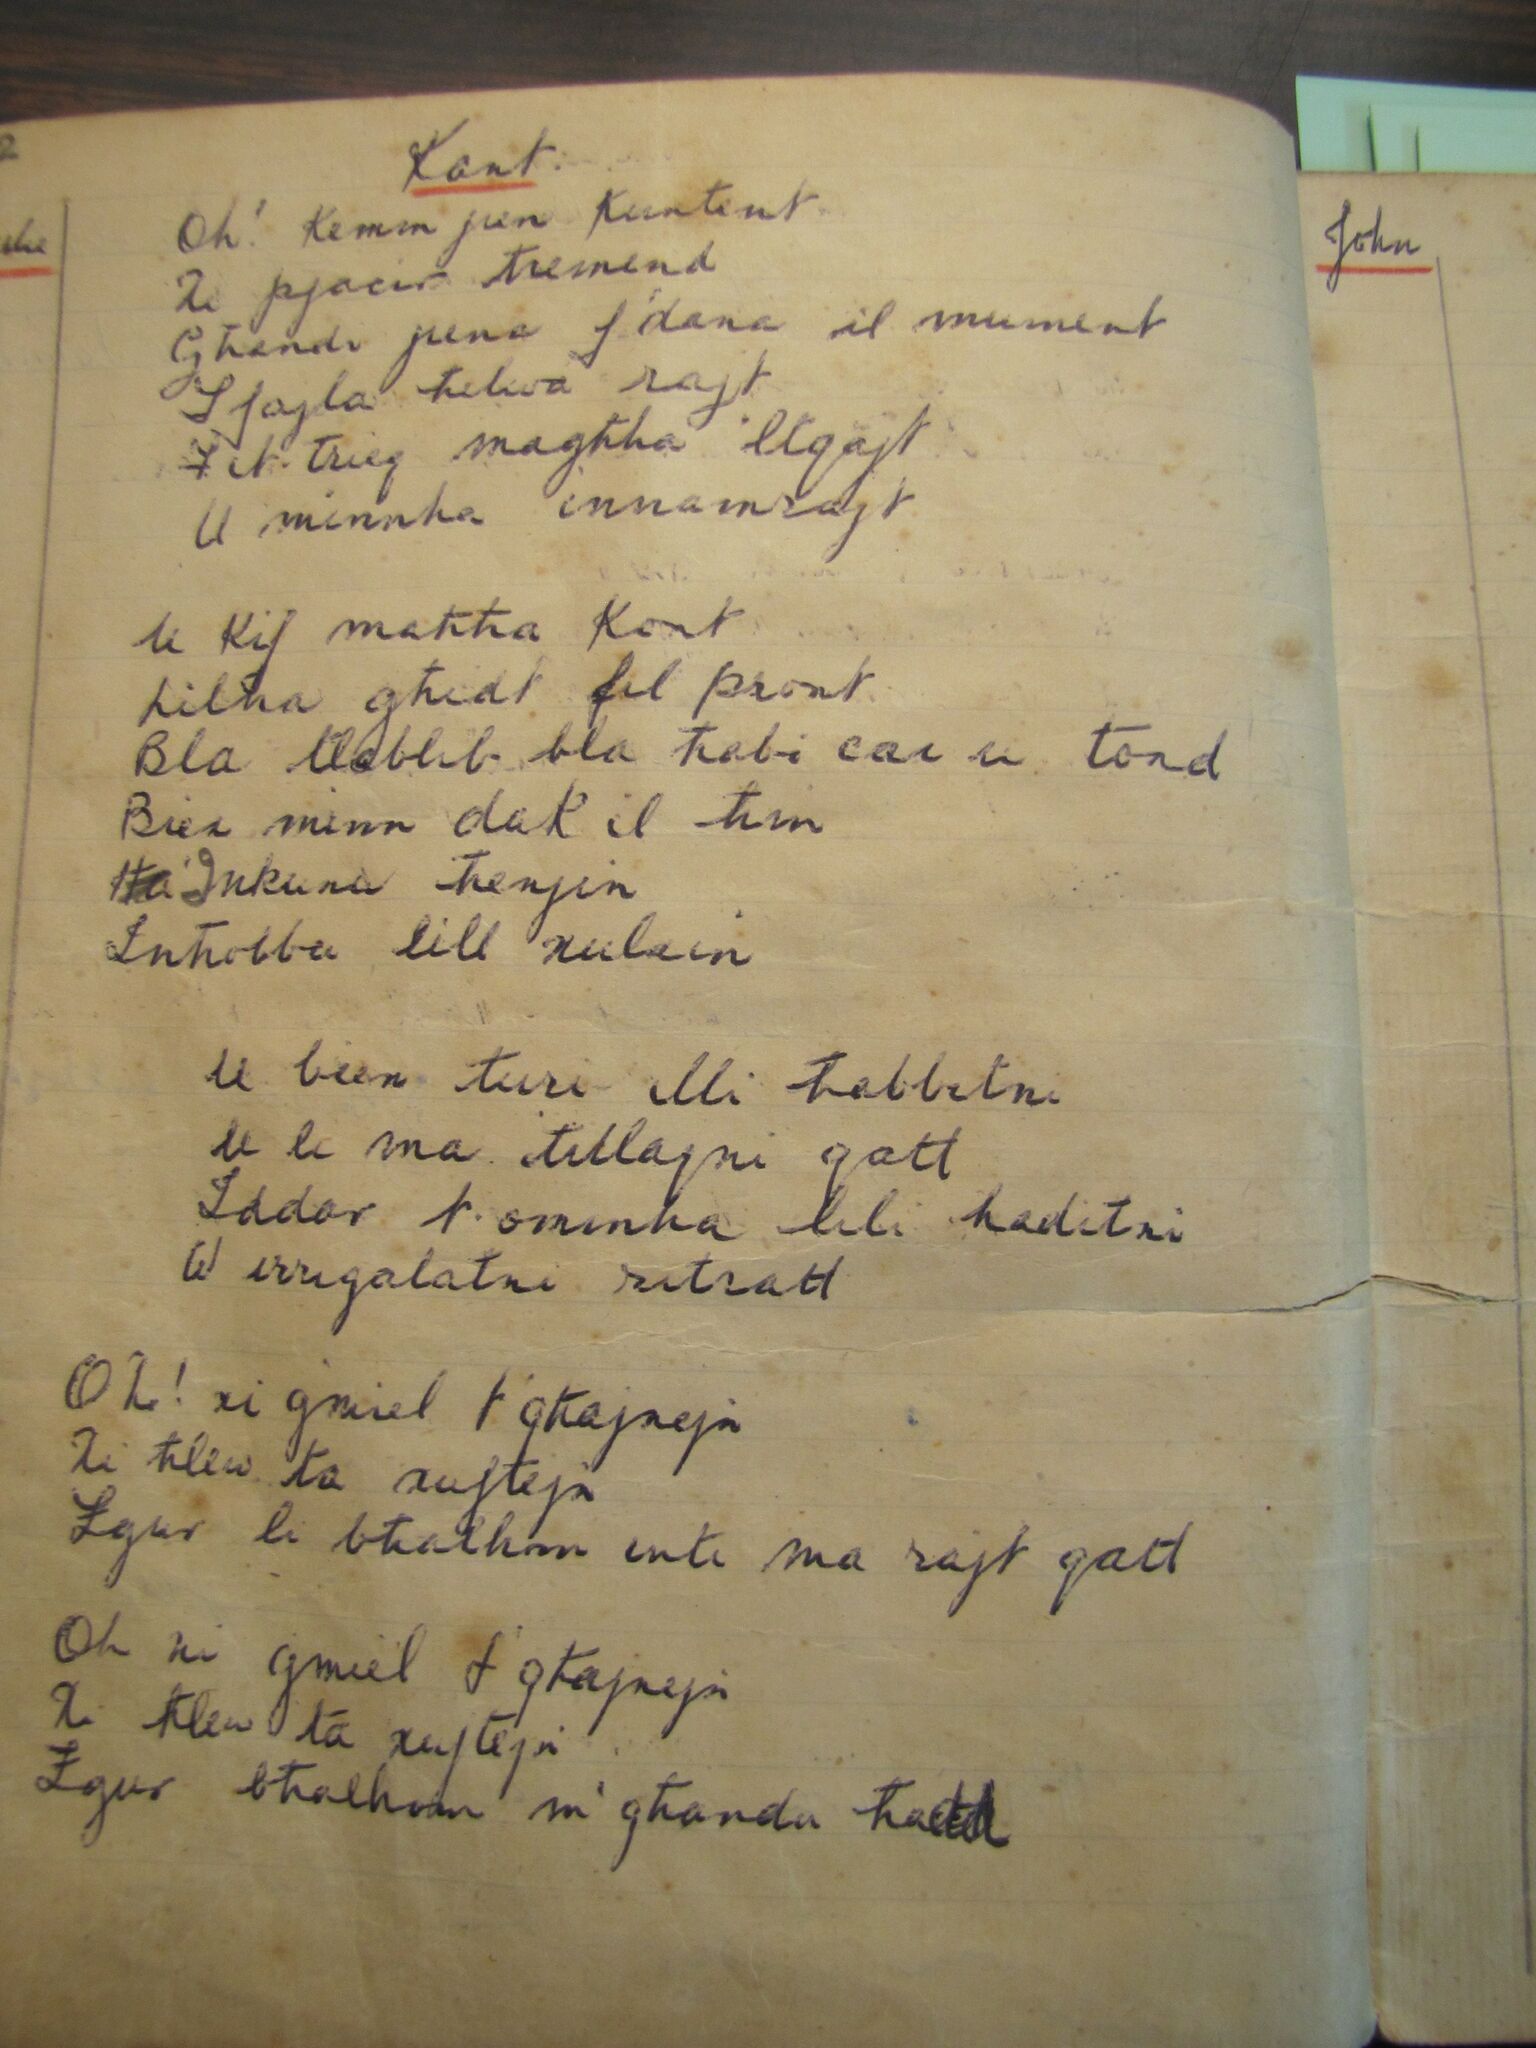 Kant.
Oh! Kemm jien kuntent
Xi pjacir tremend
Għandi jiena f'dana il mument
I fajla ħelwa rajt
Fit-trieq magħha ltqajt
U minnha innamrajt
U Kif maħħa Kont
Lilha għidt fil pront
Bla tlablib bla ħabi car u tond
Biex minn dak il ħin
Inkunu ħenjin
Inħobbu lill xulxin
U biex turi illi ħabbitni
U li ma tillajni qatt
Iddar t-ommha lili ħaditni
U irrigalatni ritratt
Oh! xi gmiel t'għajnejn
Xi ħlew ta xuftejn
Zgur li bħalhom inti ma rajt qatt
Oh xi gmiel t'għajnejn
Xi ħlew ta xuftejn
Zgur bħalhom m'għandu ħadd
John